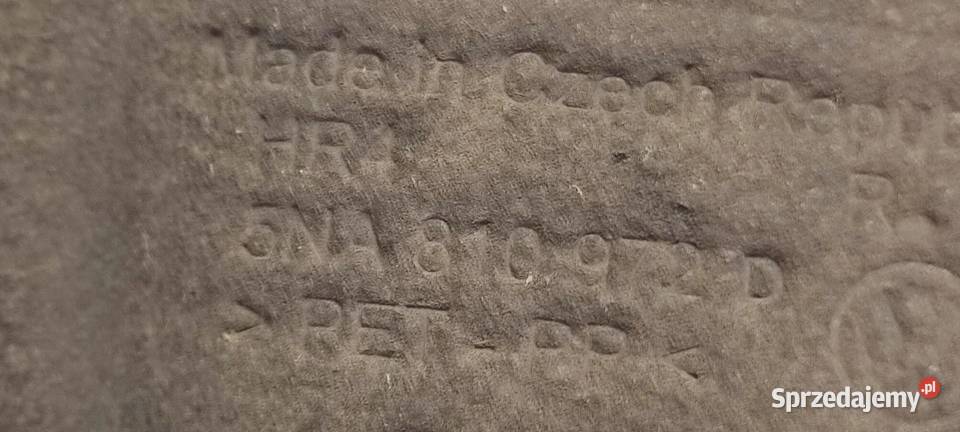 Made in Czech Repub
HR1
R.
5NA 810 972 D
> PET - PP <
Sprzedajemy.pl